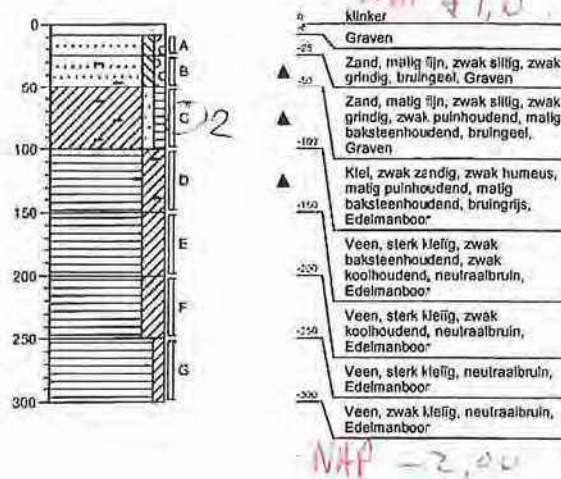 0
50
100
150
200
250
300
A
B
C
D
E
F
G
2
0
klinker
Graven
-25
Zand, matig fijn, zwak siltig, zwak
grindig, bruingeel, Graven
-50
Zand, matig fijn, zwak siltig, zwak
grindig, zwak puinhoudend, matig
baksteenhoudend, bruingeel,
Graven
-100
Klei, zwak zandig, zwak humeus,
matig puinhoudend, matig
baksteenhoudend, bruingrijs,
Edelmanboor
-150
Veen, sterk kleiig, zwak
baksteenhoudend, zwak
koolhoudend, neutraalbruin,
Edelmanboor
-200
Veen, sterk kleiig, zwak
koolhoudend, neutraalbruin,
Edelmanboor
-250
Veen, sterk kleiig, neutraalbruin,
Edelmanboor
-300
Veen, zwak kleiig, neutraalbruin,
Edelmanboor
NAP -2,00